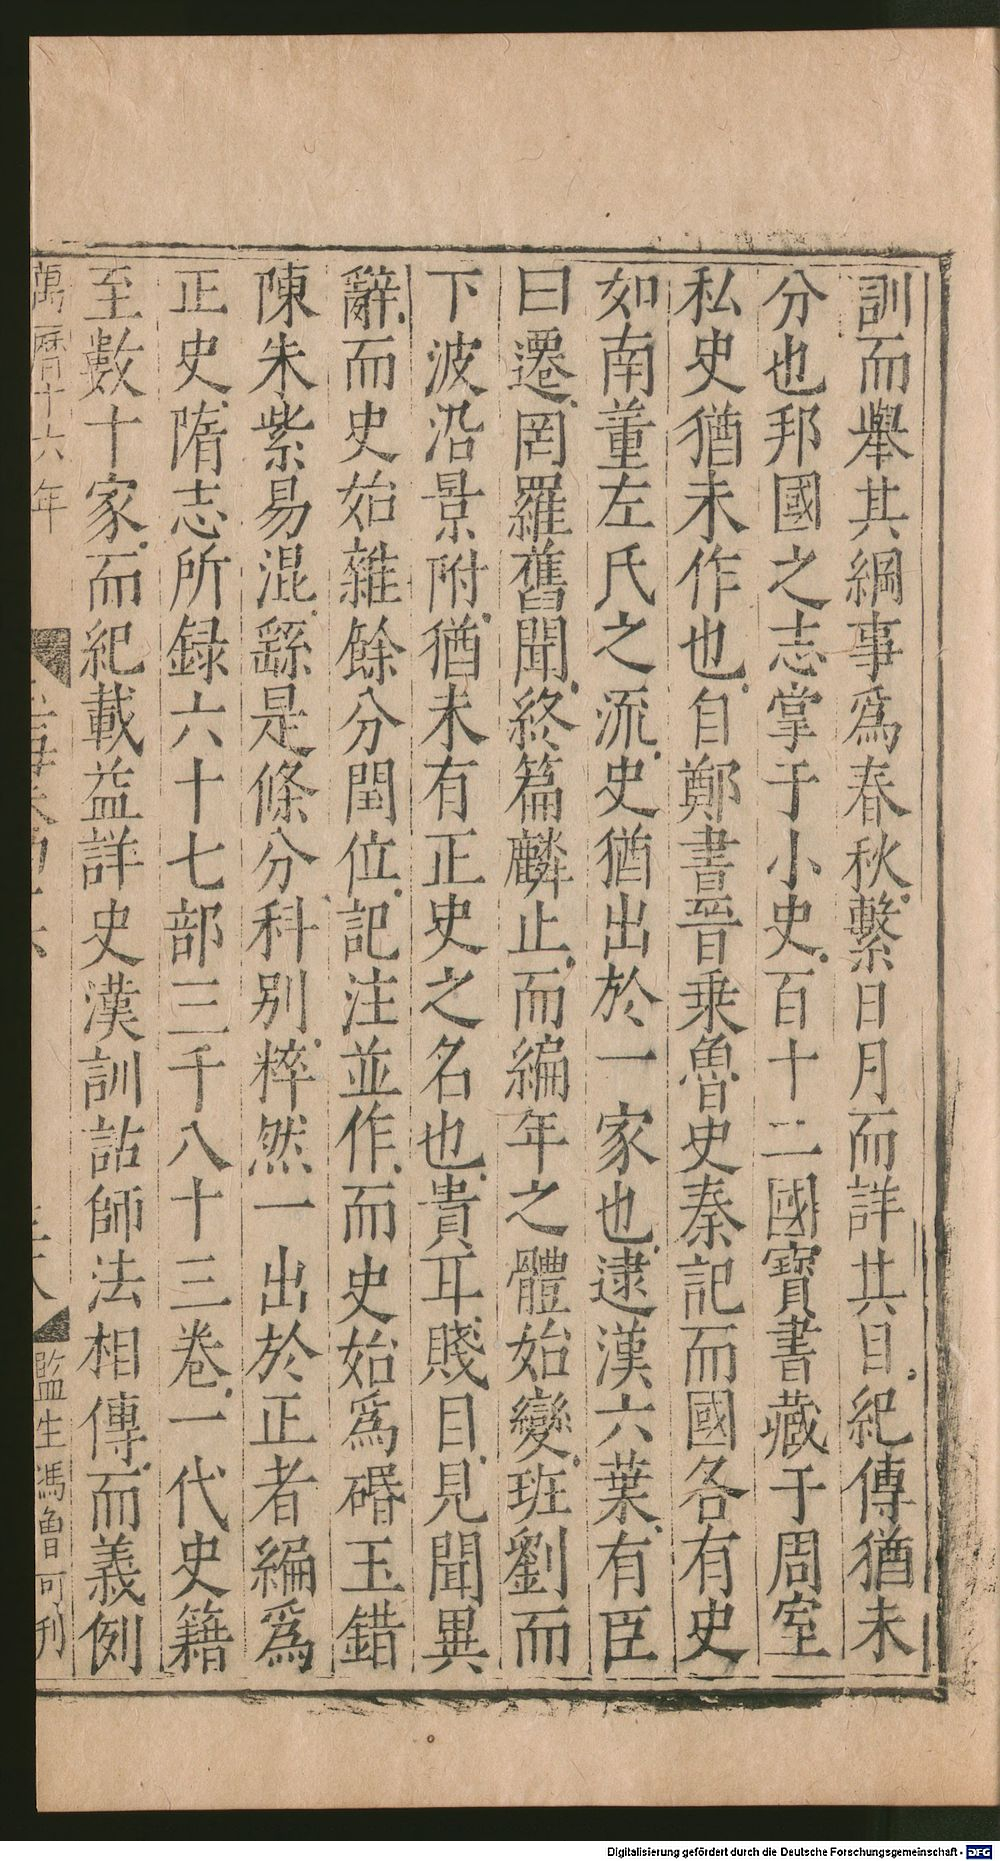 訓而舉其綱事爲春秋繫日月而詳其目紀傳猶未
分也邦國之志掌于小史百十二國寶書藏于周室
私史猶未作也自鄭書晉乗魯史秦記而國各有史
如南董左氏之流史猶出於一家也逮漢六葉有臣
曰遷罔羅舊聞終篇麟止而編年之體始變班劉而
下波沿景附猶未有正史之名也貴耳賤目見聞異
辭而史始雜餘分閏位記注並作而史始爲碈玉錯
陳朱紫易混繇是條分科別粹然一出於正者編爲
正史隋志所録六十七部三千八十三卷一代史籍
至數十家而紀載益詳史漢訓詁師法相傳而義例
萬曆十六年
監生馮魯可刊
Digitalisierung gefördert durch die Deutsche Forschungsgemeinschaft - DFG